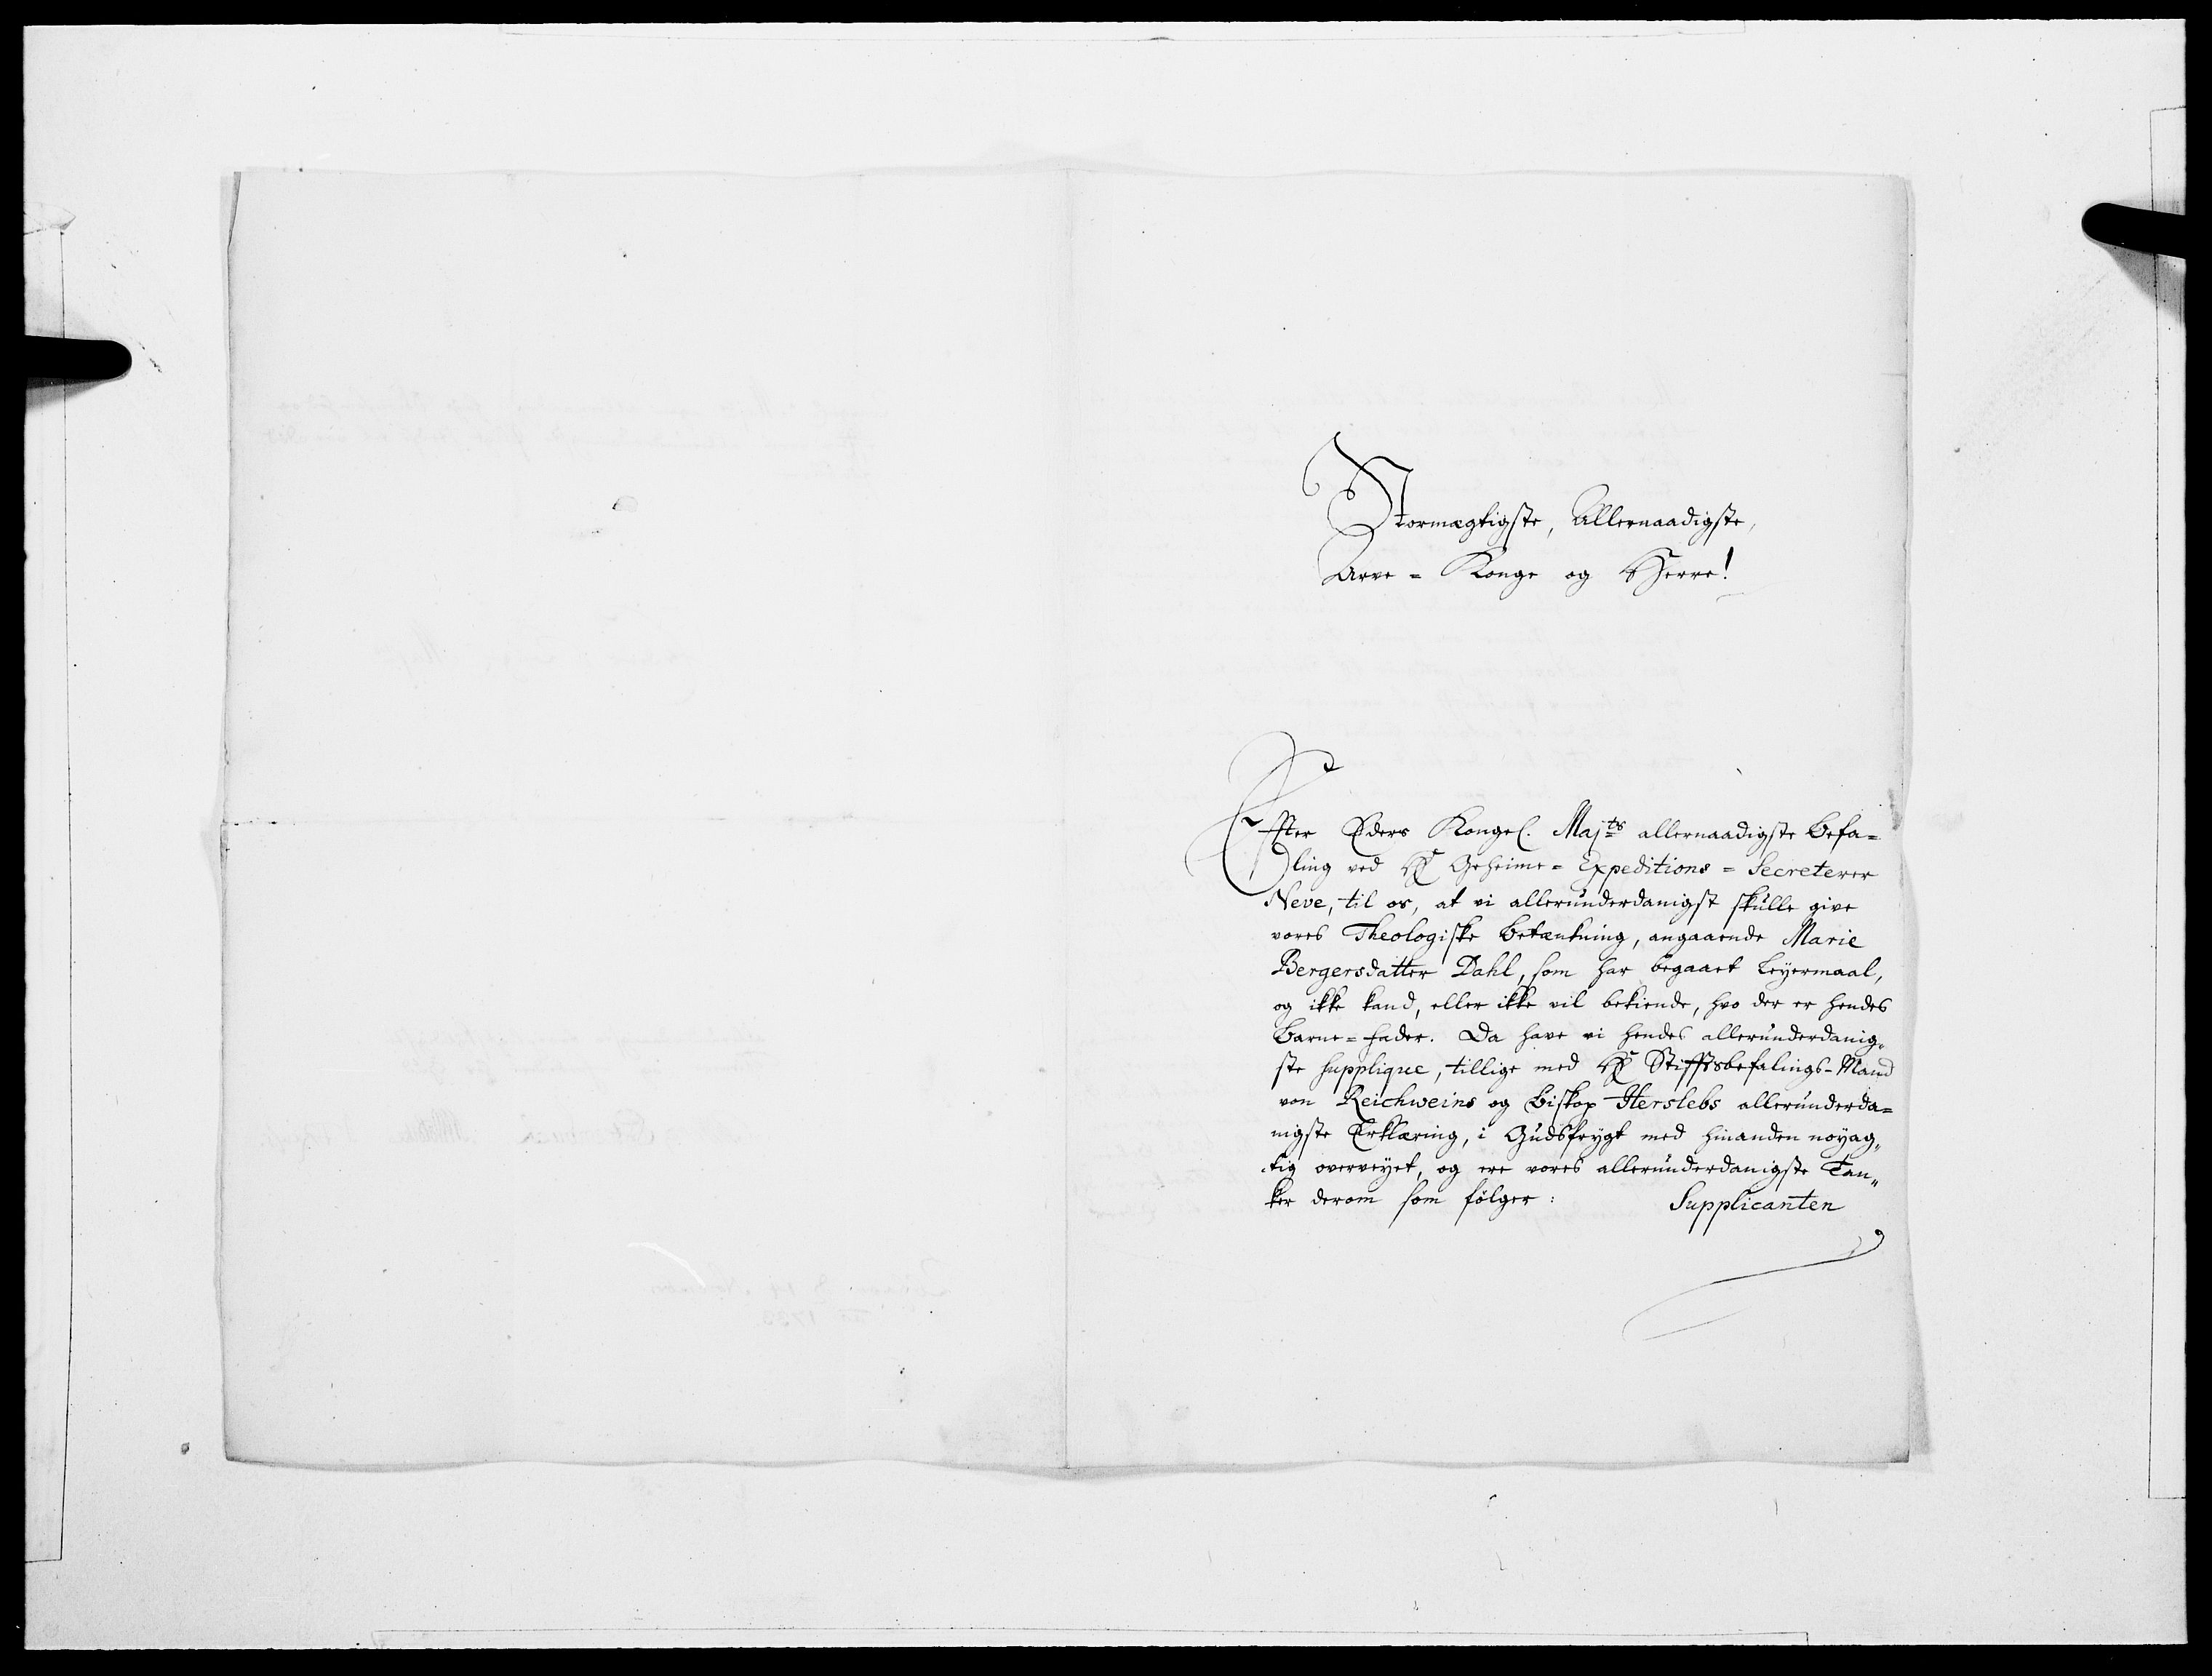 Stormægtigste, Allernaadigste,
Arve=Konge og Herre!
Efter Eders Kongel. Majts allernaadigste Befa=
ling ved Hr Geheime=Expeditions=Secreterer
Neve, til os, at vi allerunderdanigst skulle give
vores Theologiske Betænkning, angaaende Marie
Bergersdatter Dahl, som har begaaet Leyermaal,
og ikke kand, eller ikke vil bekiende, hvo der er hendes
Barne=fader. Da have vi hendes allerunderdanig„
ste Supplique, tillige med Hr Stifftsbefalings-Mand
von Reichweins og Biskop Herslebs allerunderda=
nigste Erklæring, i Gudsfrygt med hinanden nøyag„
tig overveyet, og ere vores allerunderdanigste Tan„
ker derom som følger:
Supplicanten